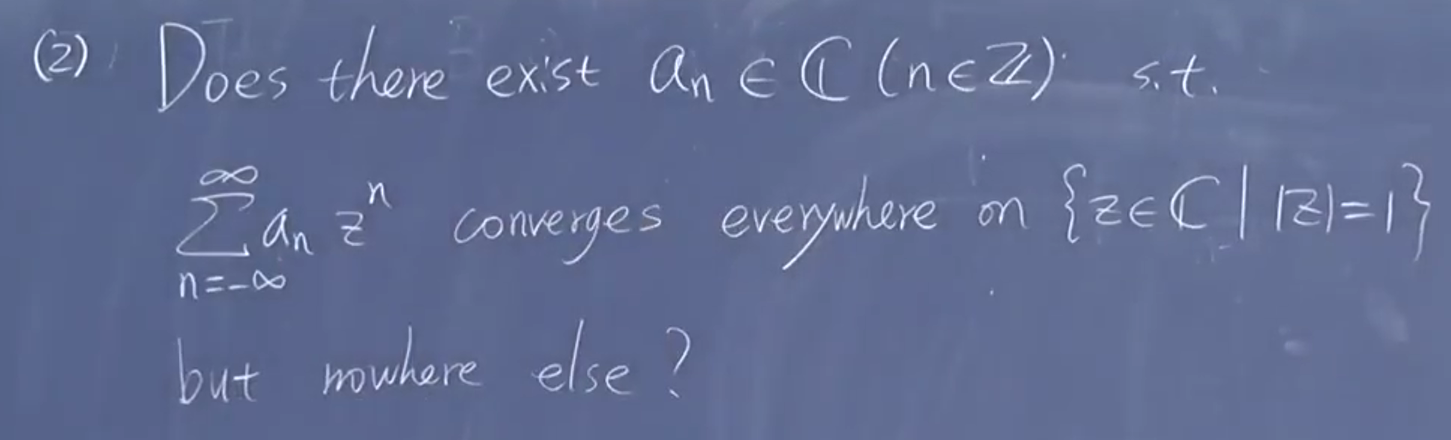 (2) Does there exist aₙ ∈ ℂ (n∈ℤ) s.t.
∞
∑ aₙ zⁿ converges everywhere on {z∈ℂ | |z|=1}
n=-∞
but nowhere else?